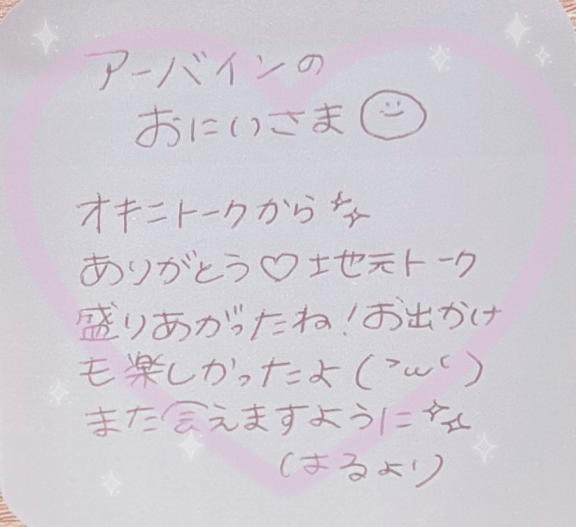 アーバインの
おにいさま
オキニトークから
ありがとう♡地元トーク
盛りあがったね!お出かけ
も楽しかったよ(>ω<)
また会えますように
はるより